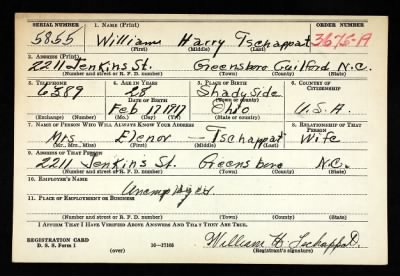 SERIAL NUMBER 1. NAME (Print) ORDER NUMBER
5855 William Harry Tschappat 3675-A
(First) (Middle) (Last)
2. ADDRESS (Print)
2211 Jenkins St. Greensboro Guilford N.C.
(Number and street or R. F. D. number) (Town) (County) (State)
3. TELEPHONE 4. AGE IN YEARS 5. PLACE OF BIRTH 6. COUNTRY OF CITIZENSHIP
6389 28 Shadyside
DATE OF BIRTH (Town or county)
Feb 17 1917 Ohio U.S.A.
(Exchange) (Number) (Mo.) (Day) (Yr.) (State or country)
7. NAME OF PERSON WHO WILL ALWAYS KNOW YOUR ADDRESS 8. RELATIONSHIP OF THAT PERSON
Mrs. Elenor Tschappat Wife
(Mr., Mrs., Miss) (First) (Middle) (Last)
9. ADDRESS OF THAT PERSON
2211 Jenkins St. Greensboro N.C.
(Number and street or R. F. D. number) (Town) (County) (State)
10. EMPLOYER'S NAME
Unemployed
11. PLACE OF EMPLOYMENT OR BUSINESS
(Number and street or R. F. D. number) (Town) (County) (State)
I AFFIRM THAT I HAVE VERIFIED ABOVE ANSWERS AND THAT THEY ARE TRUE.
REGISTRATION CARD
D. S. S. Form 1 (over) William H Tschappat
(Registrant's signature)